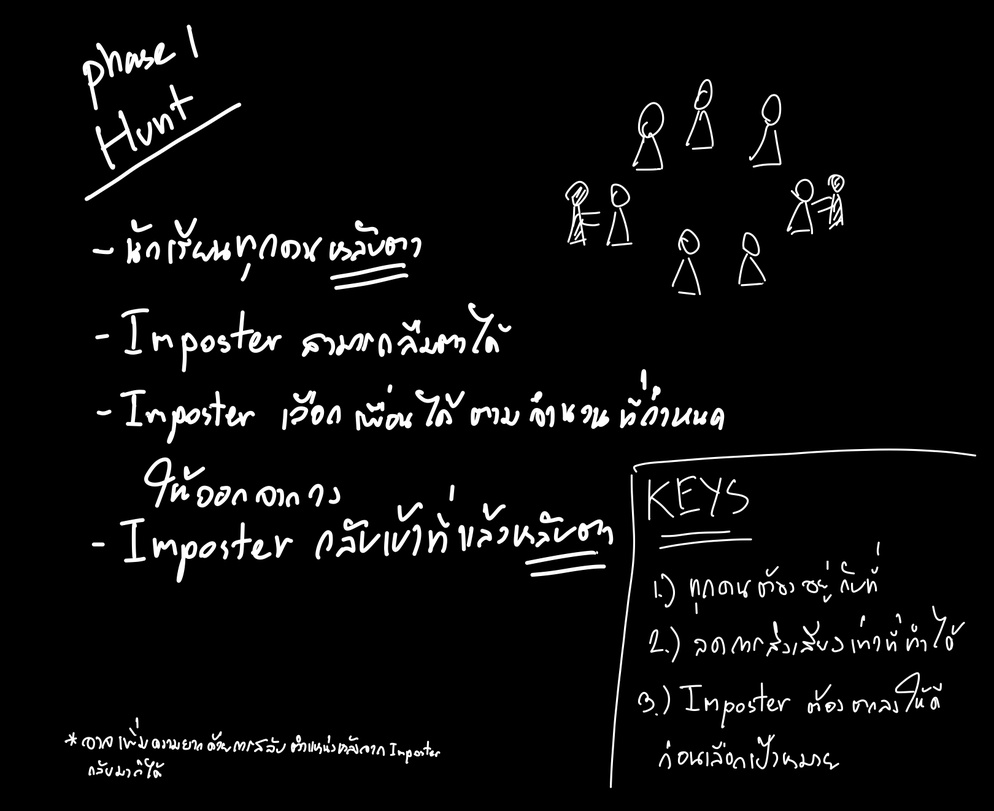 phase 1
Hunt
- นักเรียนทุกคนหลับตา
- Imposter สามารถลืมตาได้
- Imposter เลือกเพื่อนได้ตามจำนวนที่กำหนด
ให้ออกจากวง
- Imposter กลับเข้าที่แล้วหลับตา
KEYS
1.) ทุกคนต้องอยู่กับที่
2.) ลดการส่งเสียงเท่าที่ทำได้
3.) Imposter ต้องตกลงให้ดี
ก่อนเลือกเป้าหมาย
* อาจเพิ่มความยากด้วยการสลับตำแหน่งหลังจาก Imposter
กลับมาก็ได้